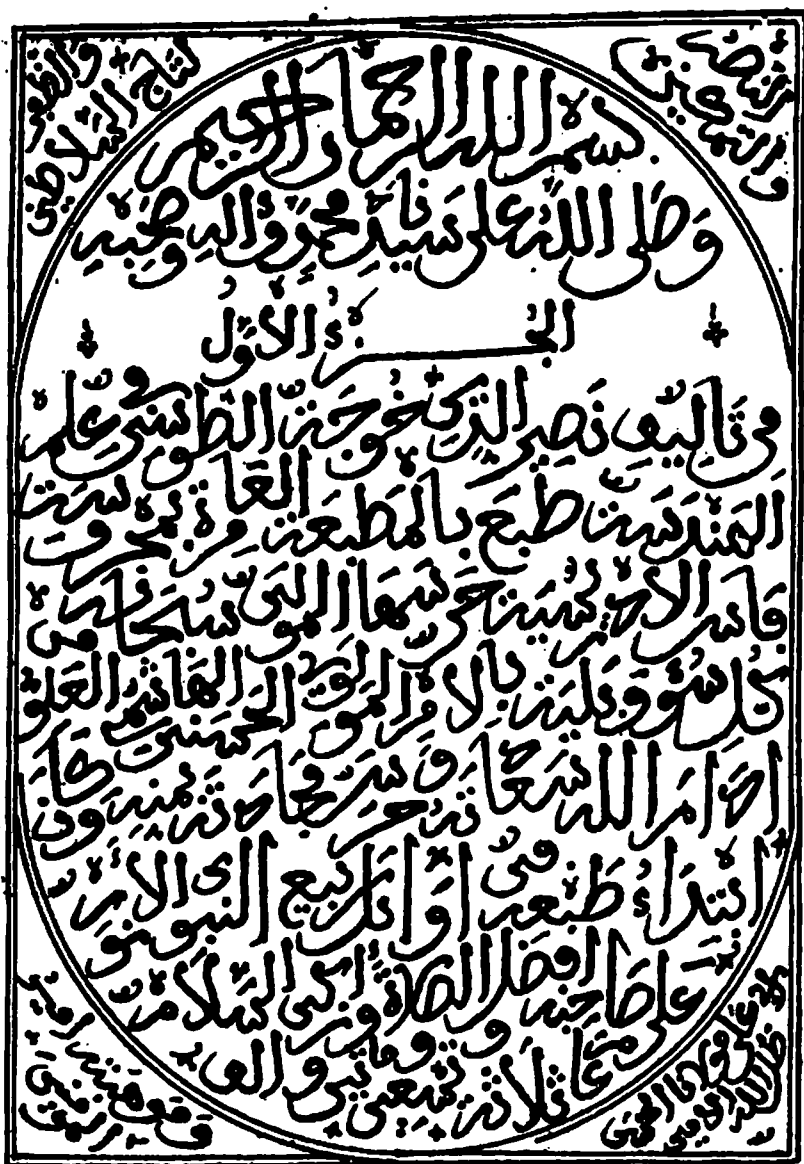 النصر
والتمكين
والظفر
لتاج السلاطين
بسم الله الرحمان الرحيم
وصلى الله على سيدنا محمد وآله وصحبه
الجزء الأول
من تأليف نصير الدين خوجة الطوسي في علم
الهندسة طبع بالمطبعة العامرة بمحروسة
فاس الادريسية حرسها المولى سبحانه من
كل سوء وبلية بالامر المولوي الحسني الهاشمي العلوي
ادام الله سعادته وحرس مجادته بمنه وكان
ابتداء طبعه في اوائل ربيع النبوي الانور
على صاحبه افضل الصلاة وازكى السلام
عام ثلاثة وتسعين ومائتين والف
مولانا الحسن